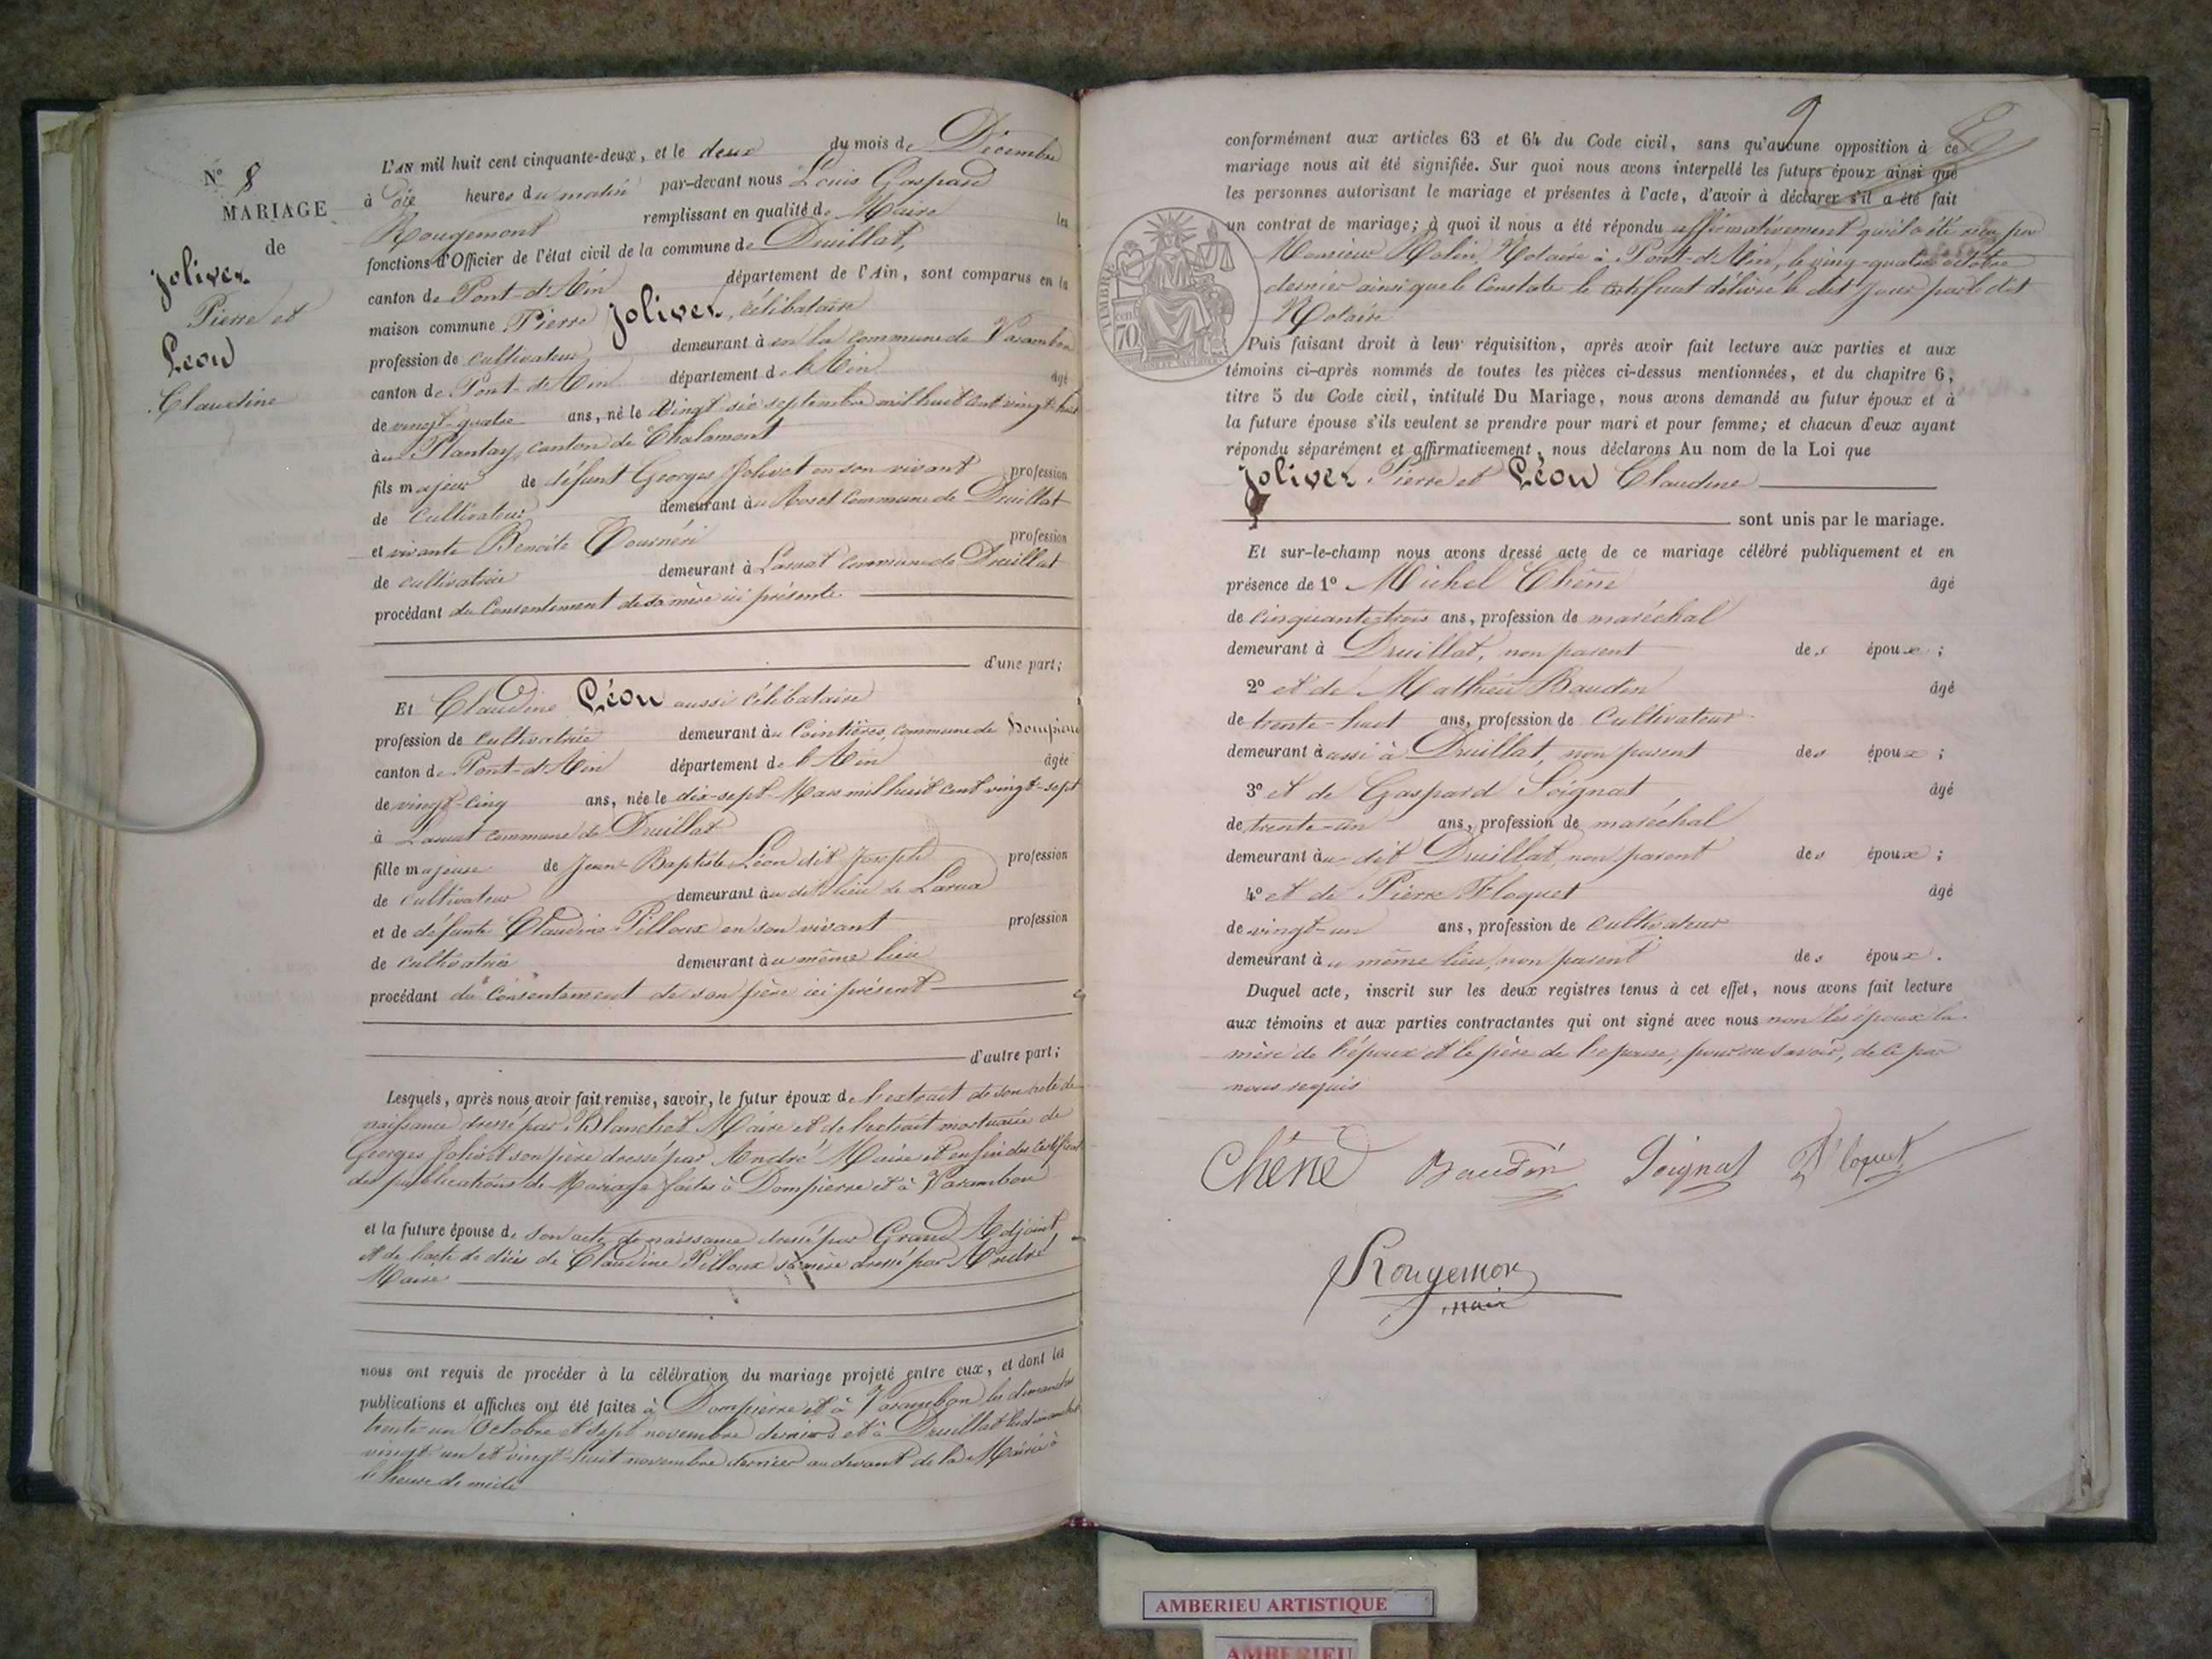 N.º 8
MARIAGE
de
Jolivet
Pierre et
Léon
Claudine
L'AN mil huit cent cinquante-deux, et le deux du mois de Décembre
à dix heures du matin par-devant nous Louis Gaspard
Rougemont remplissant en qualité de Maire les
fonctions d'Officier de l'état civil de la commune de Druillat,
canton de Pont-d'Ain département de l'Ain, sont comparus en la
maison commune Pierre Jolivet, célibataire
profession de cultivateur demeurant à en la commune de Varambon
canton de Pont-d'Ain département de l'Ain âgé
de vingt-quatre ans, né le vingt-six septembre mil huit cent vingt-huit
au Plantay, canton de Chalamont
fils majeur de défunt Georges Jolivet en son vivant profession
de cultivateur demeurant au commune de Druillat
et vivante Benoite profession
de cultivatrice demeurant à commune de Druillat
procédant du consentement de sa mère ici présente
d'une part;
Et Claudine Léon aussi célibataire
profession de cultivatrice demeurant à commune de Dompierre
canton de Pont-d'Ain département de l'Ain âgée
de vingt-cinq ans, née le dix-sept Mars mil huit cent vingt-sept
à commune de Druillat
fille majeure de Jean-Baptiste Léon dit Joseph profession
de cultivateur demeurant au dit lieu de
et de défunte Claudine Pilloux en son vivant profession
de cultivatrice demeurant au même lieu
procédant du consentement de son père ici présent
d'autre part;
Lesquels, après nous avoir fait remise, savoir, le futur époux de l'extrait de son acte de
naissance dressé par Blanchet Maire et de l'extrait mortuaire de
Georges Jolivet son père dressé par André Maire et enfin des certificats
des publications de Mariage faites à Dompierre et à Varambon
et la future épouse de son acte de naissance dressé par Grand Adjoint,
et de l'acte de décès de Claudine Pilloux sa mère dressé par André
Maire
nous ont requis de procéder à la célébration du mariage projeté entre eux, et dont les
publications et affiches ont été faites à Dompierre et à Varambon les dimanches
trente-un Octobre et sept novembre derniers et à Druillat les dimanches
vingt-un et vingt-huit novembre dernier au devant de la Mairie à
l'heure de midi
9
conformément aux articles 63 et 64 du Code civil, sans qu'aucune opposition à ce
mariage nous ait été signifiée. Sur quoi nous avons interpellé les futurs époux ainsi que
les personnes autorisant le mariage et présentes à l'acte, d'avoir à déclarer s'il a été fait
un contrat de mariage; à quoi il nous a été répondu affirmativement qu'il a été reçu par
Monsieur Notaire à Pont-d'Ain, le vingt-quatre octobre
dernier ainsi que le constate le certificat délivré le dit jour par le dit
Notaire
TIMBRE
70 cent
Puis faisant droit à leur réquisition, après avoir fait lecture aux parties et aux
témoins ci-après nommés de toutes les pièces ci-dessus mentionnées, et du chapitre 6,
titre 5 du Code civil, intitulé Du Mariage, nous avons demandé au futur époux et à
la future épouse s'ils veulent se prendre pour mari et pour femme; et chacun d'eux ayant
répondu séparément et affirmativement, nous déclarons Au nom de la Loi que
Jolivet Pierre et Léon Claudine
sont unis par le mariage.
Et sur-le-champ nous avons dressé acte de ce mariage célébré publiquement et en
présence de 1º Michel Chêne âgé
de cinquante-trois ans, profession de maréchal
demeurant à Druillat, non parent des époux;
2º et de Mathieu Baudin âgé
de trente-huit ans, profession de cultivateur
demeurant aussi à Druillat, non parent des époux;
3º et de Gaspard Soignat âgé
de trente-un ans, profession de maréchal
demeurant au dit Druillat, non parent des époux;
4º et de Pierre Floquet âgé
de vingt-un ans, profession de cultivateur
demeurant au même lieu, non parent des époux.
Duquel acte, inscrit sur les deux registres tenus à cet effet, nous avons fait lecture
aux témoins et aux parties contractantes qui ont signé avec nous non les époux la
mère de l'époux et le père de l'épouse, pour ne savoir, de ce par
nous requis
Chêne Baudin Soignat Floquet
Rougemont
maire
AMBERIEU ARTISTIQUE
AMBERIEU